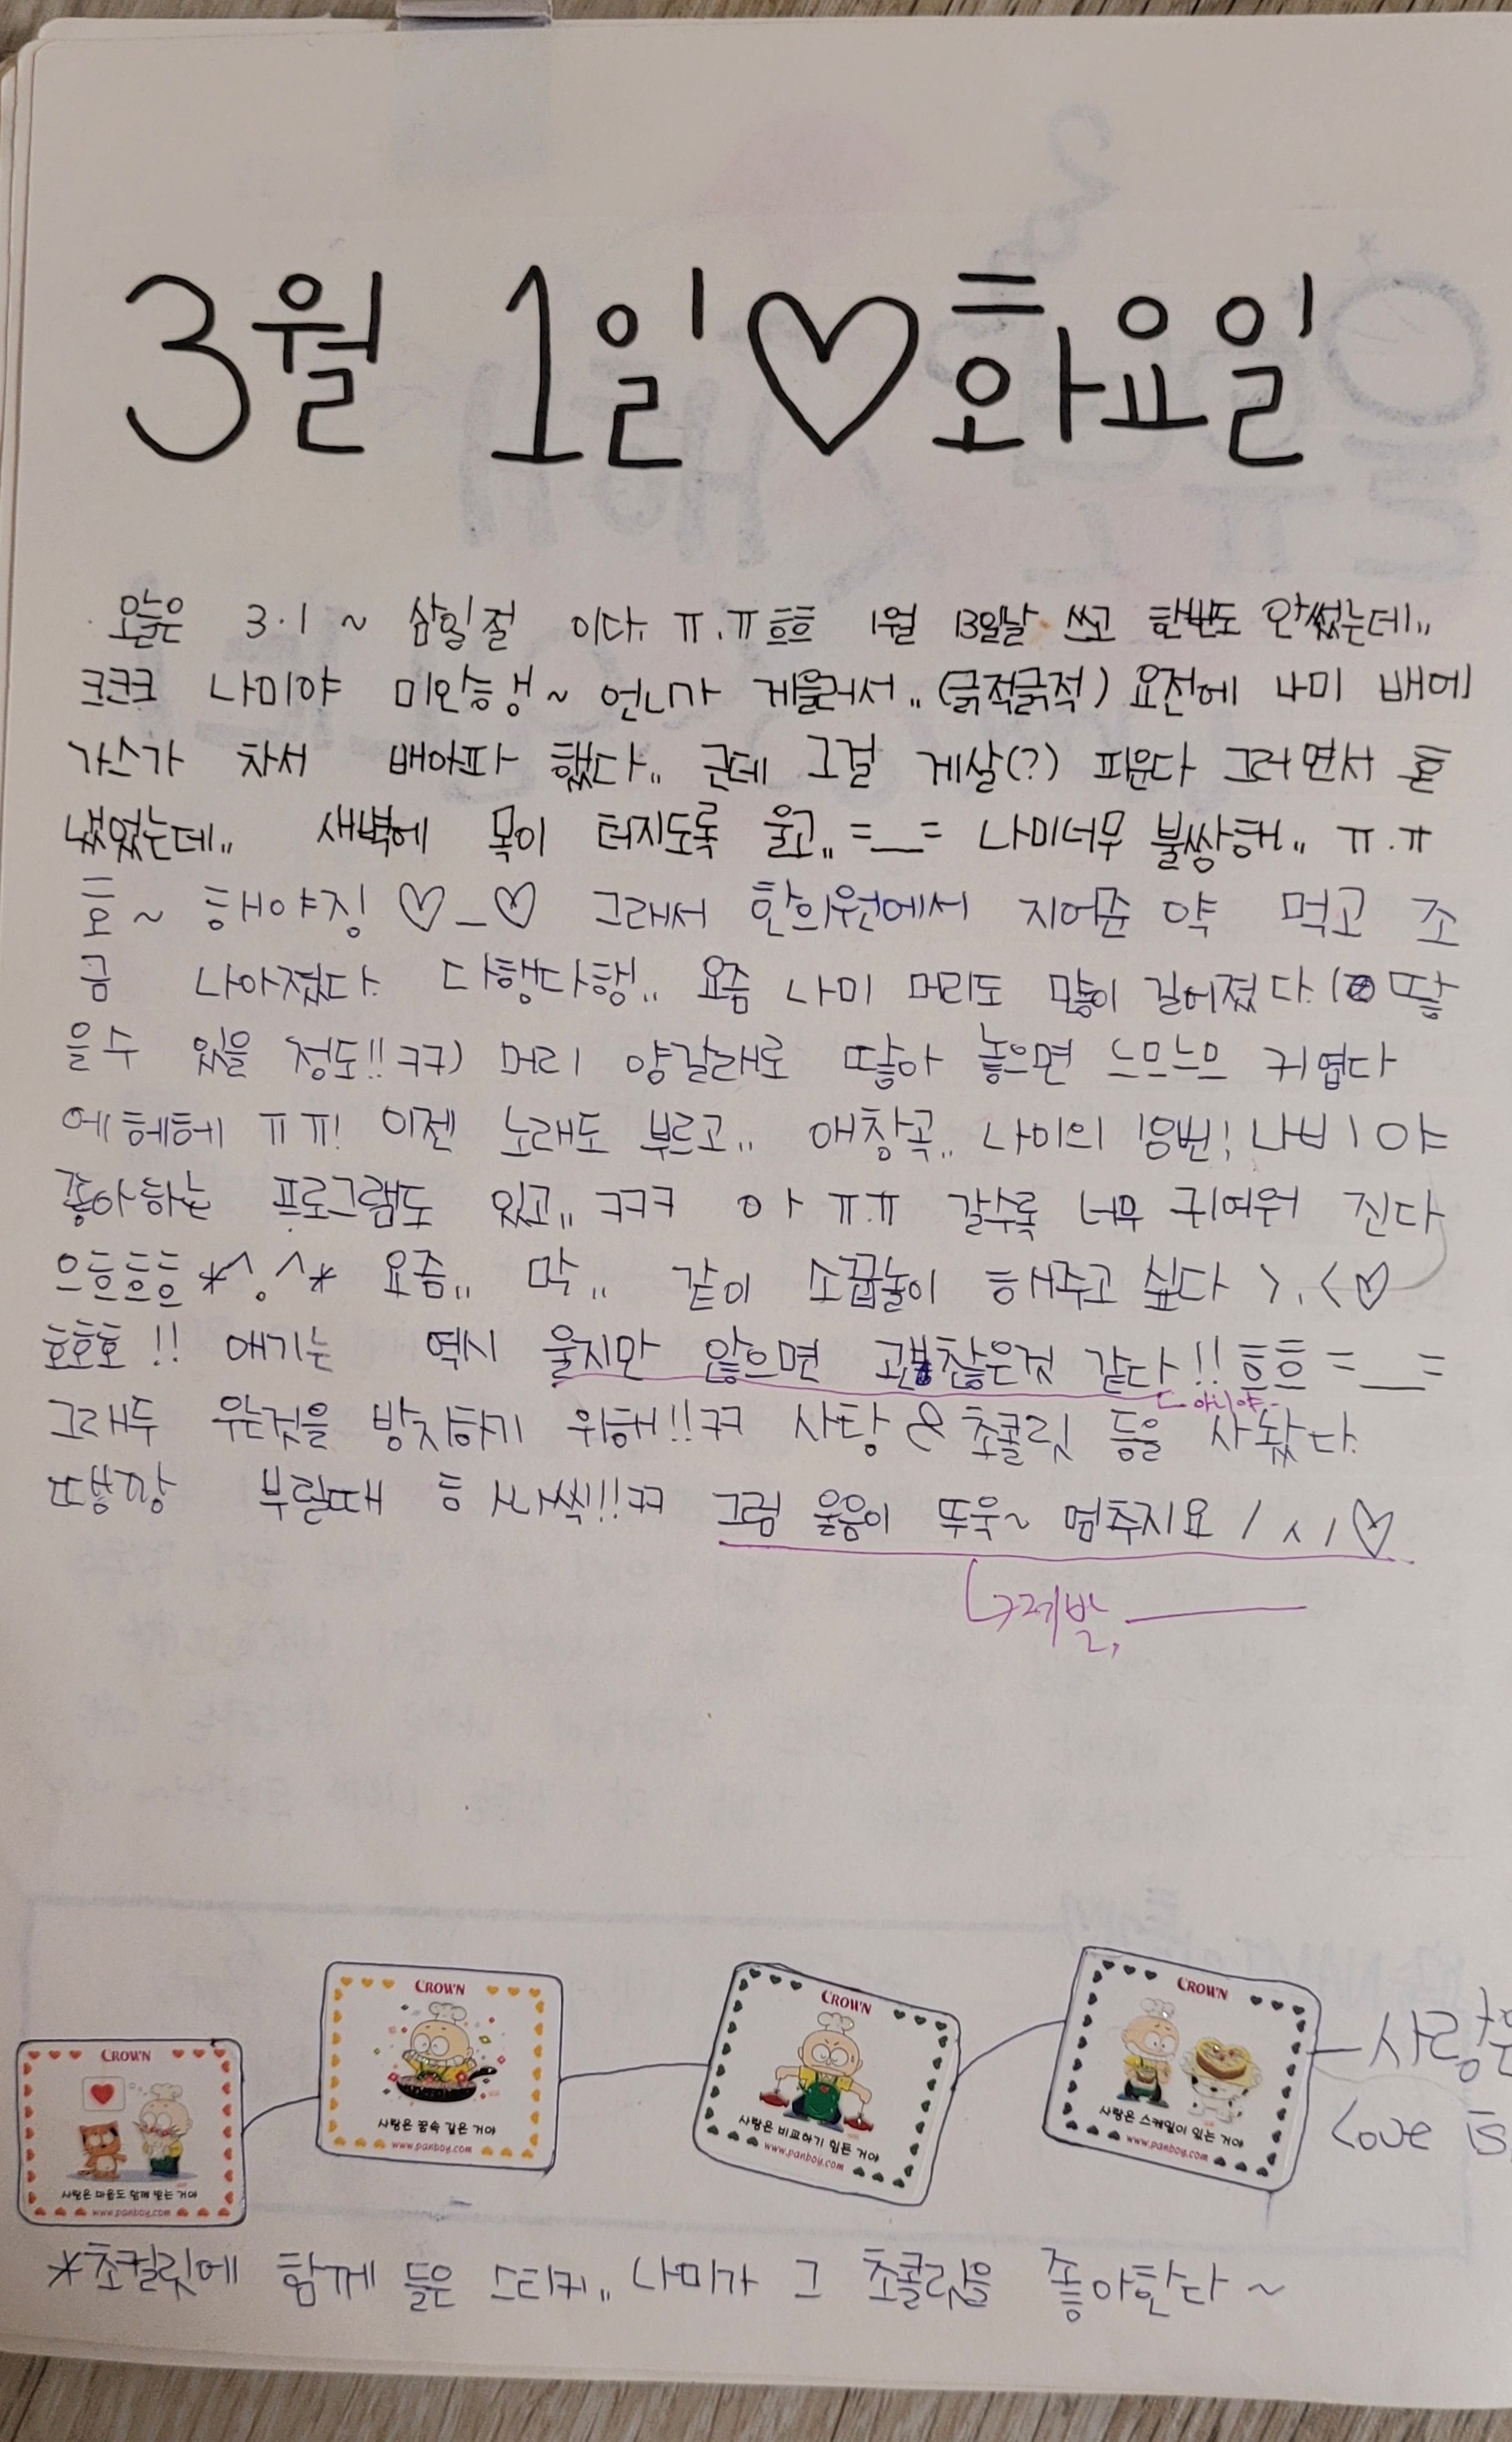 3월 1일♡화요일
오늘은 3.1 ~ 삼일절 이다. ㅠ.ㅠ 흐흐 1월 13일날 쓰고 한번도 안썼는데..
크크크 나미야 미안행~ 언니가 게을러서.. (긁적긁적) 요전에 나미 배에
가스가 차서 배아파 했다.. 근데 그걸 게살(?) 피운다 그러면서 혼
냈었는데.. 새벽에 목이 터지도록 울고.. =__= 나미너무 불쌍해.. ㅠ.ㅠ
호~ 해야징 ♡_♡ 그래서 한의원에서 지어준 약 먹고 조
금 나아졌다. 다행다행.. 요즘 나미 머리도 많이 길어졌다. ( 땋
을수 있을 정도!! ㅋㅋ) 머리 양갈래로 땋아 놓으면 느므느므 귀엽다
에헤헤 ㅠㅠ! 이젠 노래도 부르고.. 애창곡.. 나미의 1번! 나비야
좋아하는 프로그램도 있고.. ㅋㅋㅋ 아 ㅠ.ㅠ 갈수록 너무 귀여워 진다
으흐흐흐 *^.^* 요즘.. 막.. 같이 소꿉놀이 해주고 싶다 >.<♡
호호호!! 애기는 역시 울지만 않으면 괜찮은것 같다!! 흐흐 =__=
아니야..
그래두 우는것을 방지하기 위해!! ㅋㅋ 사탕 & 초콜릿 등을 사놨다.
땡깡 부릴때 하나씩!!! ㅋㅋ 그럼 울음이 뚜욱~ 멈추지요 / ㅅ / ♡
↳제발,
CROWN
사랑은 마음도 함께 받는 거야
www.panboy.com
CROWN
사랑은 꿈속 같은 거야
www.panboy.com
CROWN
사랑은 비교하기 힘든 거야
www.panboy.com
CROWN
사랑은 스케일이 있는 거야
www.panboy.com
사랑은
Love is
*초컬릿에 함께 들은 스티커.. 나미가 그 초콜릿을 좋아한다~